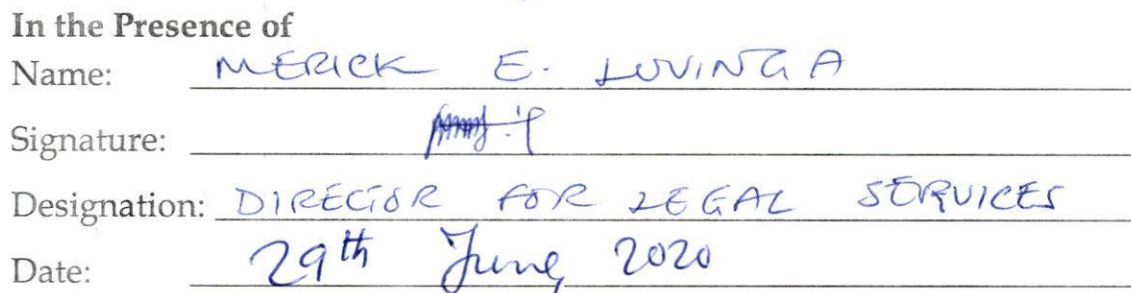 In the Presence of
Name: MERICK E. LUVINGA
Signature:
Designation: DIRECTOR FOR LEGAL SERVICES
Date: 29th June, 2020